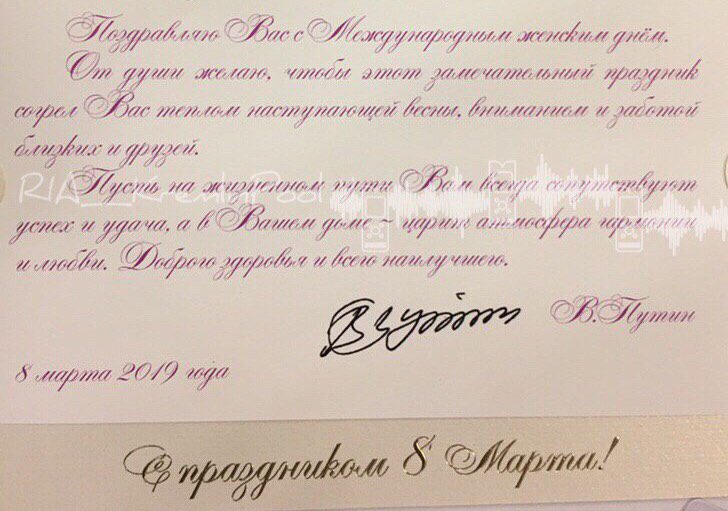 Поздравляю Вас с Международным женским днём.
От души желаю, чтобы этот замечательный праздник
согрел Вас теплом наступающей весны, вниманием и заботой
близких и друзей.
Пусть на жизненном пути Вам всегда сопутствуют
RIA_KremlinPool
успех и удача, а в Вашем доме ~ царит атмосфера гармонии
и любви. Доброго здоровья и всего наилучшего.
В.Путин
8 марта 2019 года
С праздником 8 Марта!